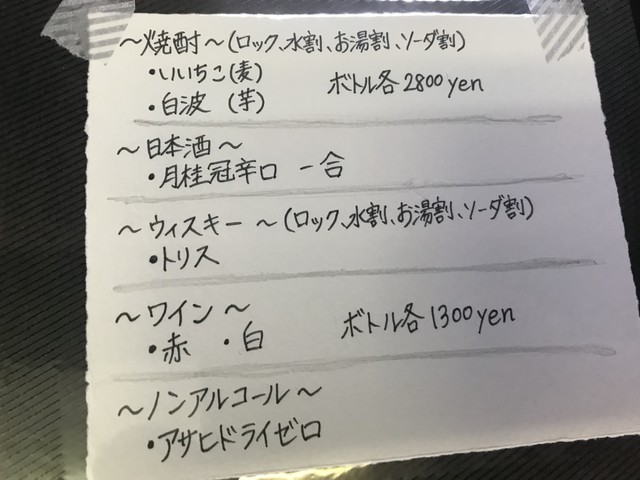 ～焼酎～(ロック、水割、お湯割、ソーダ割)
・いいちこ(麦)
・白波 (芋) ボトル各2800yen
～日本酒～
・月桂冠辛口 一合
～ウィスキー～(ロック、水割、お湯割、ソーダ割)
・トリス
～ワイン～
・赤 ・白 ボトル各1300yen
～ノンアルコール～
・アサヒドライゼロ